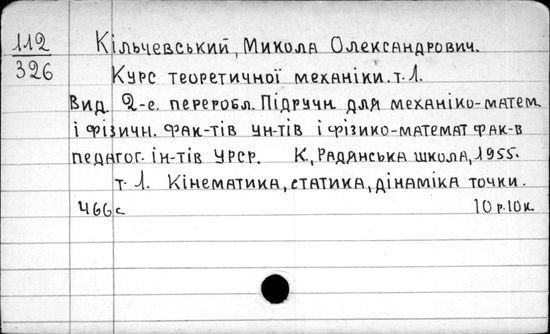 112
326
Кільчевський, Микола Олександрович.
Курс теоретичної механіки. т. 1.
Вид. 2-е. переробл. Підручн. для механіко-матем.
і фізичн. фак-тів ун-тів і фізико-математ фак-в
педагог. ін-тів УРСР. К., Радянська школа, 1955.
т. 1. Кінематика, статика, дінаміка точки.
466 с 10 р. 10 к.